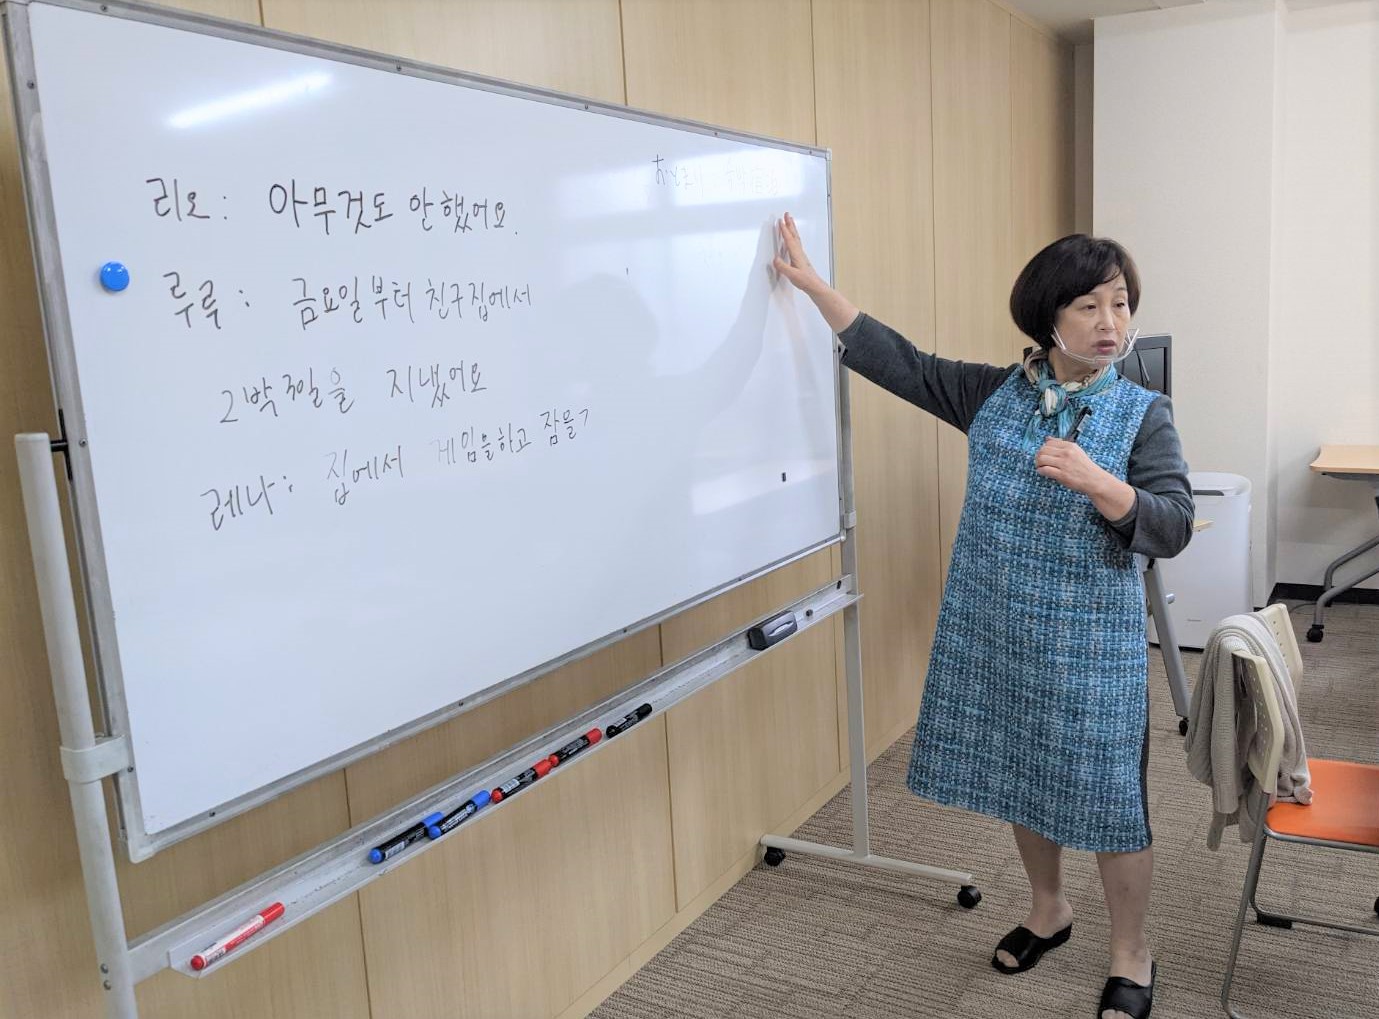 리오 : 아무것도 안 했어요.
루루 : 금요일부터 친구집에서
2박 3일을 지냈어요
레나 : 집에서 게임을하고 잠을